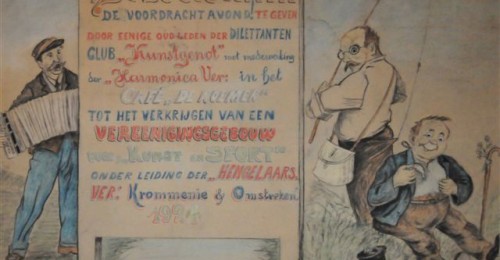 DE VOORDRACHT AVOND, TE GEVEN
DOOR EENIGE OUD LEDEN DER DILETTANTEN
CLUB „Kunstgenot" met medewerking
der „Harmonica Ver: in het
CAFÉ „DE ROEMER"
TOT HET VERKRIJGEN VAN EEN
VEREENIGINGSGEBOUW
VOOR „KUNST EN SPORT"
ONDER LEIDING DER „HENGELAARS,
VER: Krommenie & Omstreken.